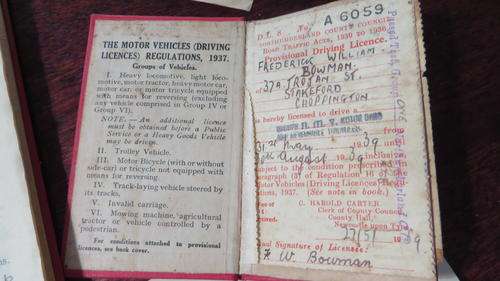 THE MOTOR VEHICLES (DRIVING
LICENCES) REGULATIONS, 1937.
Groups of Vehicles.
I. Heavy locomotive, light loco-
motive, motor tractor, heavy motor car,
motor car, or motor tricycle equipped
with means for reversing (excluding
any vehicle comprised in Group IV or
Group VI).
NOTE.—An additional licence
must be obtained before a Public
Service or a Heavy Goods Vehicle
may be driven.
II. Trolley Vehicle.
III. Motor Bicycle (with or without
side-car) or tricycle not equipped with
means for reversing.
IV. Track-laying vehicle steered by
its tracks.
V. Invalid carriage.
VI. Mowing machine, agricultural
tractor or vehicle controlled by a
pedestrian.
For conditions attached to provisional
licences, see back cover.
D.L. 6. No. A 6059
NORTHUMBERLAND COUNTY COUNCIL
ROAD TRAFFIC ACTS, 1930 to 1936.
Provisional Driving Licence.
FREDERICK WILLIAM
BOWMAN
STAKEFORD
CHOPPINGTON
is hereby licensed to drive a
from
31st May 1939 until
August 1939 inclusive
subject to the condition prescribed in
paragraph (3) of Regulation 16 of the
Motor Vehicles (Driving Licences) Regu-
lations, 1937. (See notes in book.)
C. HAROLD CARTER,
Clerk of County Council
County Hall,
Newcastle upon Tyne
Usual Signature of Licensee:
F. W. Bowman